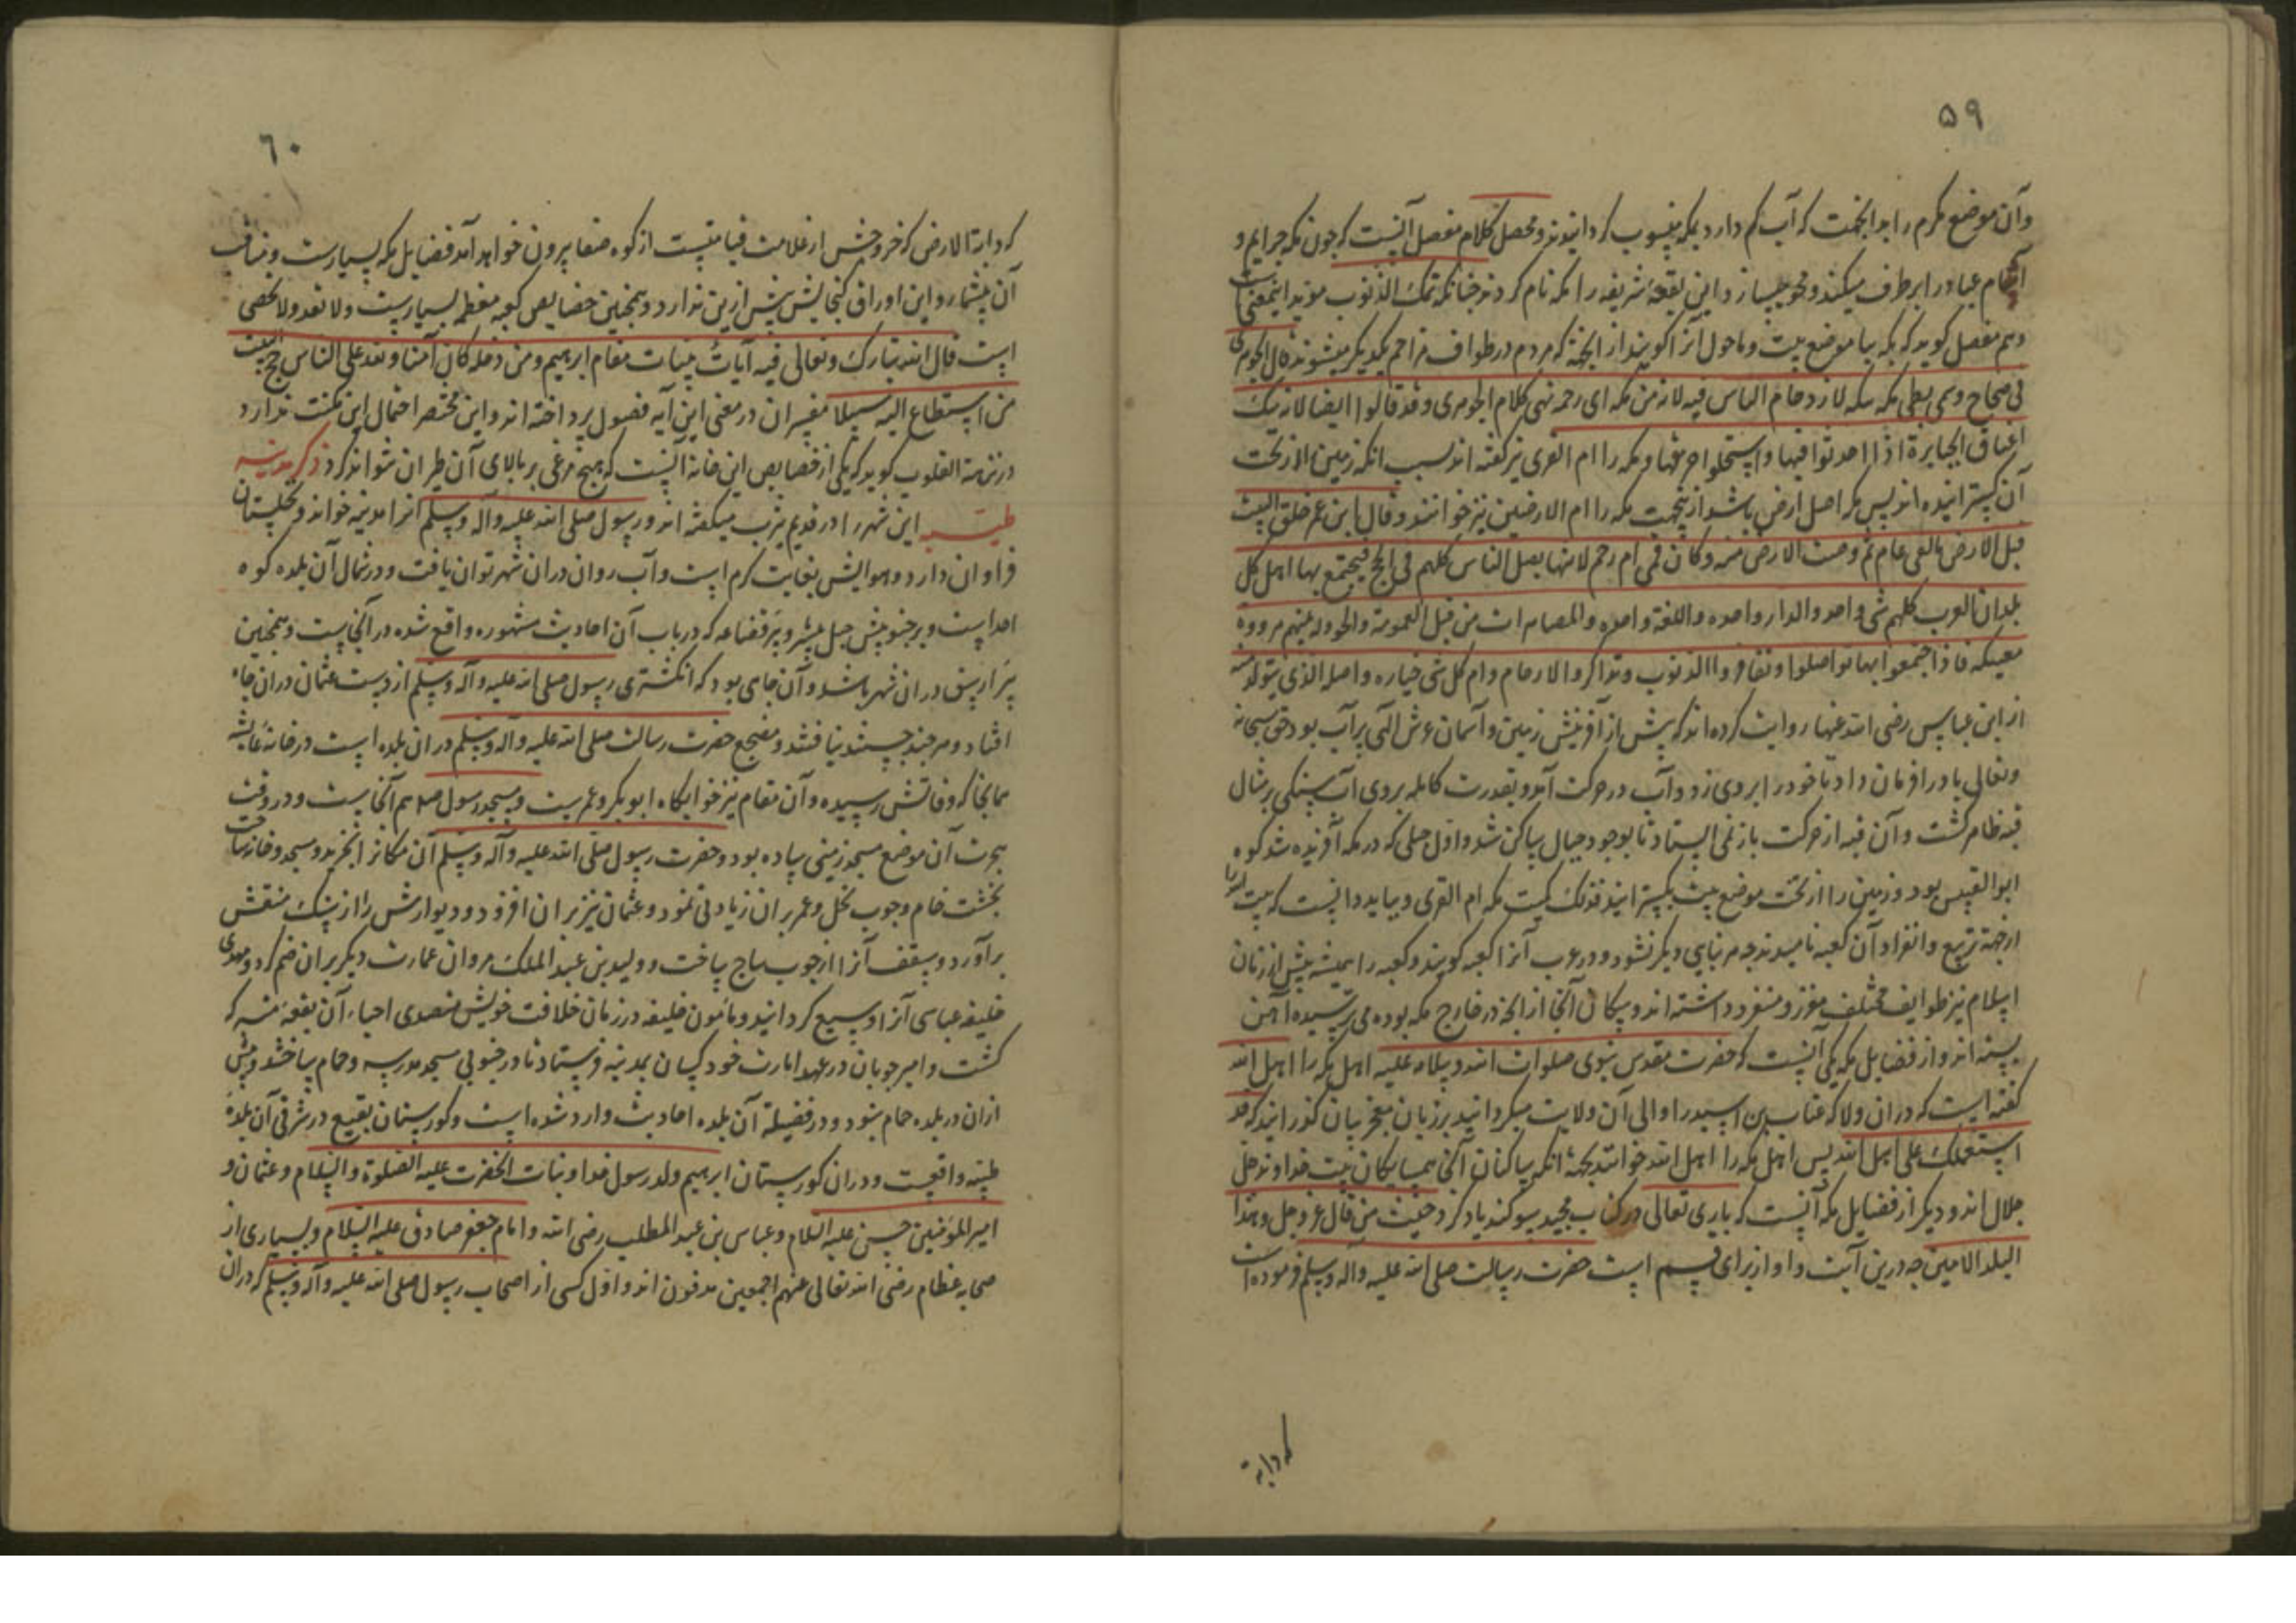 ۵۹
وآن موضع مکرم را بدانجهت که آب کم دارد بمکه منسوب کردانیدند ومحصل کلام مفصل آنست که چون مکه جرایم و
آثام عباد را برطرف میکند ومحو میسازد این بقعهٔ شریفه را مکه نام کردند چنانکه تمک الذنوب موید اینمعنیست
وهم مفصل کوید که بکه بیا موضع بیت وماحول آنرا کویند از آنجهة که مردم در طواف مزاحم یکدیکر میشوند قال الجوهری
فی صحاح وسمی بطن مکه بکه لازدحام الناس فیه لانه من بکه ای زحمه انتهی کلام الجوهری وقد قالوا ایضا لانه تبک
اعناق الجبابرة اذا احدثوا فیها واستحلوا حرمتها ومکه را ام القری نیز کفته اند بسبب انکه زمین از تحت
آن کسترانیده اند پس مکه اصل ارض باشد ازینجهت مکه را ام الارضین نیز خوانند وقال ابن عمر خلق البیت
قبل الارض بالفی عام ثم دحیت الارض منه وکان فی ام رحم لانها یصل الناس کلهم فی الحج فیجتمع بها اهل کل
بلدان العرب کلهم شی واحد والدار واحده واللغة واحده والمصاهرات من قبل العمومة والخوولة بینهم مرووة
معبکه فاذا اجتمعوا بها تواصلوا وتغافروا الذنوب وتذاکروا الارحام وام کل شی خیاره واصله الذی یتولد منه
از ابن عباس رضی الله عنها روایت کرده اند که پیش از آفرینش زمین وآسمان عرش الهی بر آب بود حق سبحانه
وتعالی باد را فرمان داد تا خود را بر وی زد وآب در حرکت آمد وبقدرت کامله بروی آب سنکی بر مثال
قبه ظاهر کشت وآن قبه از حرکت باز نمی ایستاد تا بوجود جبال ساکن شد واول جبلی که در مکه آفریده شد کوه
ابوالقبیس بود وزمین را از تحت موضع بیت بکسترانید فذلک سمیت مکه ام القری وبباید دانست که بیت الله را
از جهة تربیع وانفراد آن کعبه نامیدند چه هر بنایی دیکر نشود ودر عرب آنرا کعبه کویند وکعبه را همیشه پیش از زمان
اسلام نیز طوایف مختلف معزز ومنفرد داشته اند وسکان آنجا از آنچه در خارج مکه بوده می پرسیده آمن
بسته اند واز فضایل مکه یکی آنست که حضرت مقدس نبوی صلوات الله وسلامه علیه اهل مکه را اهل الله
کفته است که دران ولا که عتاب بن اسید را والی آن ولایت میکردانید بر زبان معجز بیان کذرانید که قد
استعملتک علی اهل الله پس اهل مکه را اهل الله خوانند بجهة انکه ساکنان آنجا همسایکان بیت خداوند جل
جلال اند ودیکر از فضایل مکه آنست که باری تعالی در کتاب مجید سوکند یاد کرد حیث من قال عز وجل وهذا
البلد الامین چه درین آیت واو از برای قسم است حضرت رسالت صلی الله علیه وآله وسلم فرموده است
که دابة
۶۰
که دابة الارض که خروجش از علامت قیامتست از کوه صفا بیرون خواهد آمد فضایل مکه بسیارست ومناقب
آن بیشمار واین اوراق کنجایش بیش ازین ندارد وهمچنین خصایص کعبه معظمه بسیارست ولا تعد ولا تحصی
است قال الله تبارک وتعالی فیه آیات بینات مقام ابرهیم ومن دخله کان آمنا ولله علی الناس حج البیت
من استطاع الیه سبیلا مفسران در معنی این آیه فصول پرداخته اند واین مختصر احتمال این مکنت ندارد
در نزهة القلوب کوید که یکی از خصایص این خانه آنست که هیچ مرغی بر بالای آن طیران نتواند کرد ذکر مدینه
طیبه این شهر را در قدیم یثرب میکفته اند ورسول صلی الله علیه وآله وسلم انرا مدینه خواند ونخلستان
فراوان دارد وهوایش بغایت کرم است وآب روان دران شهر توان یافت ودر شمال آن بلده کوه
احد است وبر جنوبیش جبل عیر وبیر قضاعه که در باب آن احادیث مشهوره واقع شده در آنجاست وهمچنین
بیر اریس در ان شهر باشد وآن جاهی بود که انکشتری رسول صلی الله علیه وآله وسلم از دست عثمان دران چاه
افتاد وهر چند جستند نیافتند ومضجع حضرت رسالت صلی الله علیه وآله وسلم در ان بلده است در خانه عایشه
همانجا که وفاتش رسیده وآن مقام نیز خوابکاه ابوبکر وعمرست ومسجد رسول صلم هم آنجاست ودر وقت
هجرت آن موضع مسجد زمینی ساده بود وحضرت رسول صلی الله علیه وآله وسلم آن مکانرا بخرید ومسجد وخانه ساخت
بخشت خام وچوب نخل وعمر بران زیادتی نمود وعثمان نیز بران افزود ودیوارش را از سنک منقش
برآورد وسقف آنرا از چوب ساج ساخت وولید بن عبد الملک مروان عمارت دیکر بران ضم کرد ومهدی
خلیفه عباسی آنرا وسیع کردانید ومامون خلیفه در زمان خلافت خویش متصدی احیاء آن بقعهٔ متبرکه
کشت وامیر چوبان در عهد امارت خود کسان بمدینه فرستاد تا در جنوبی مسجد مدرسه وحمام ساختند وپیش
ازان در بلده حمام نبود ودر فضیلة آن بلده احادیث وارد شده است وکورستان بقیع در شرقی آن بلدهٔ
طیبه واقعست ودران کورستان ابرهیم ولد رسول خدا وبنات آنحضرت علیه الصلوة والسلام وعثمان و
امیر المومنین حسن علیه السلام وعباس بن عبد المطلب رضی الله وامام جعفر صادق علیه السلام وبسیاری از
صحابه عظام رضی الله تعالی عنهم اجمعین مدفون اند واول کسی از اصحاب رسول صلی الله علیه وآله وسلم که دران